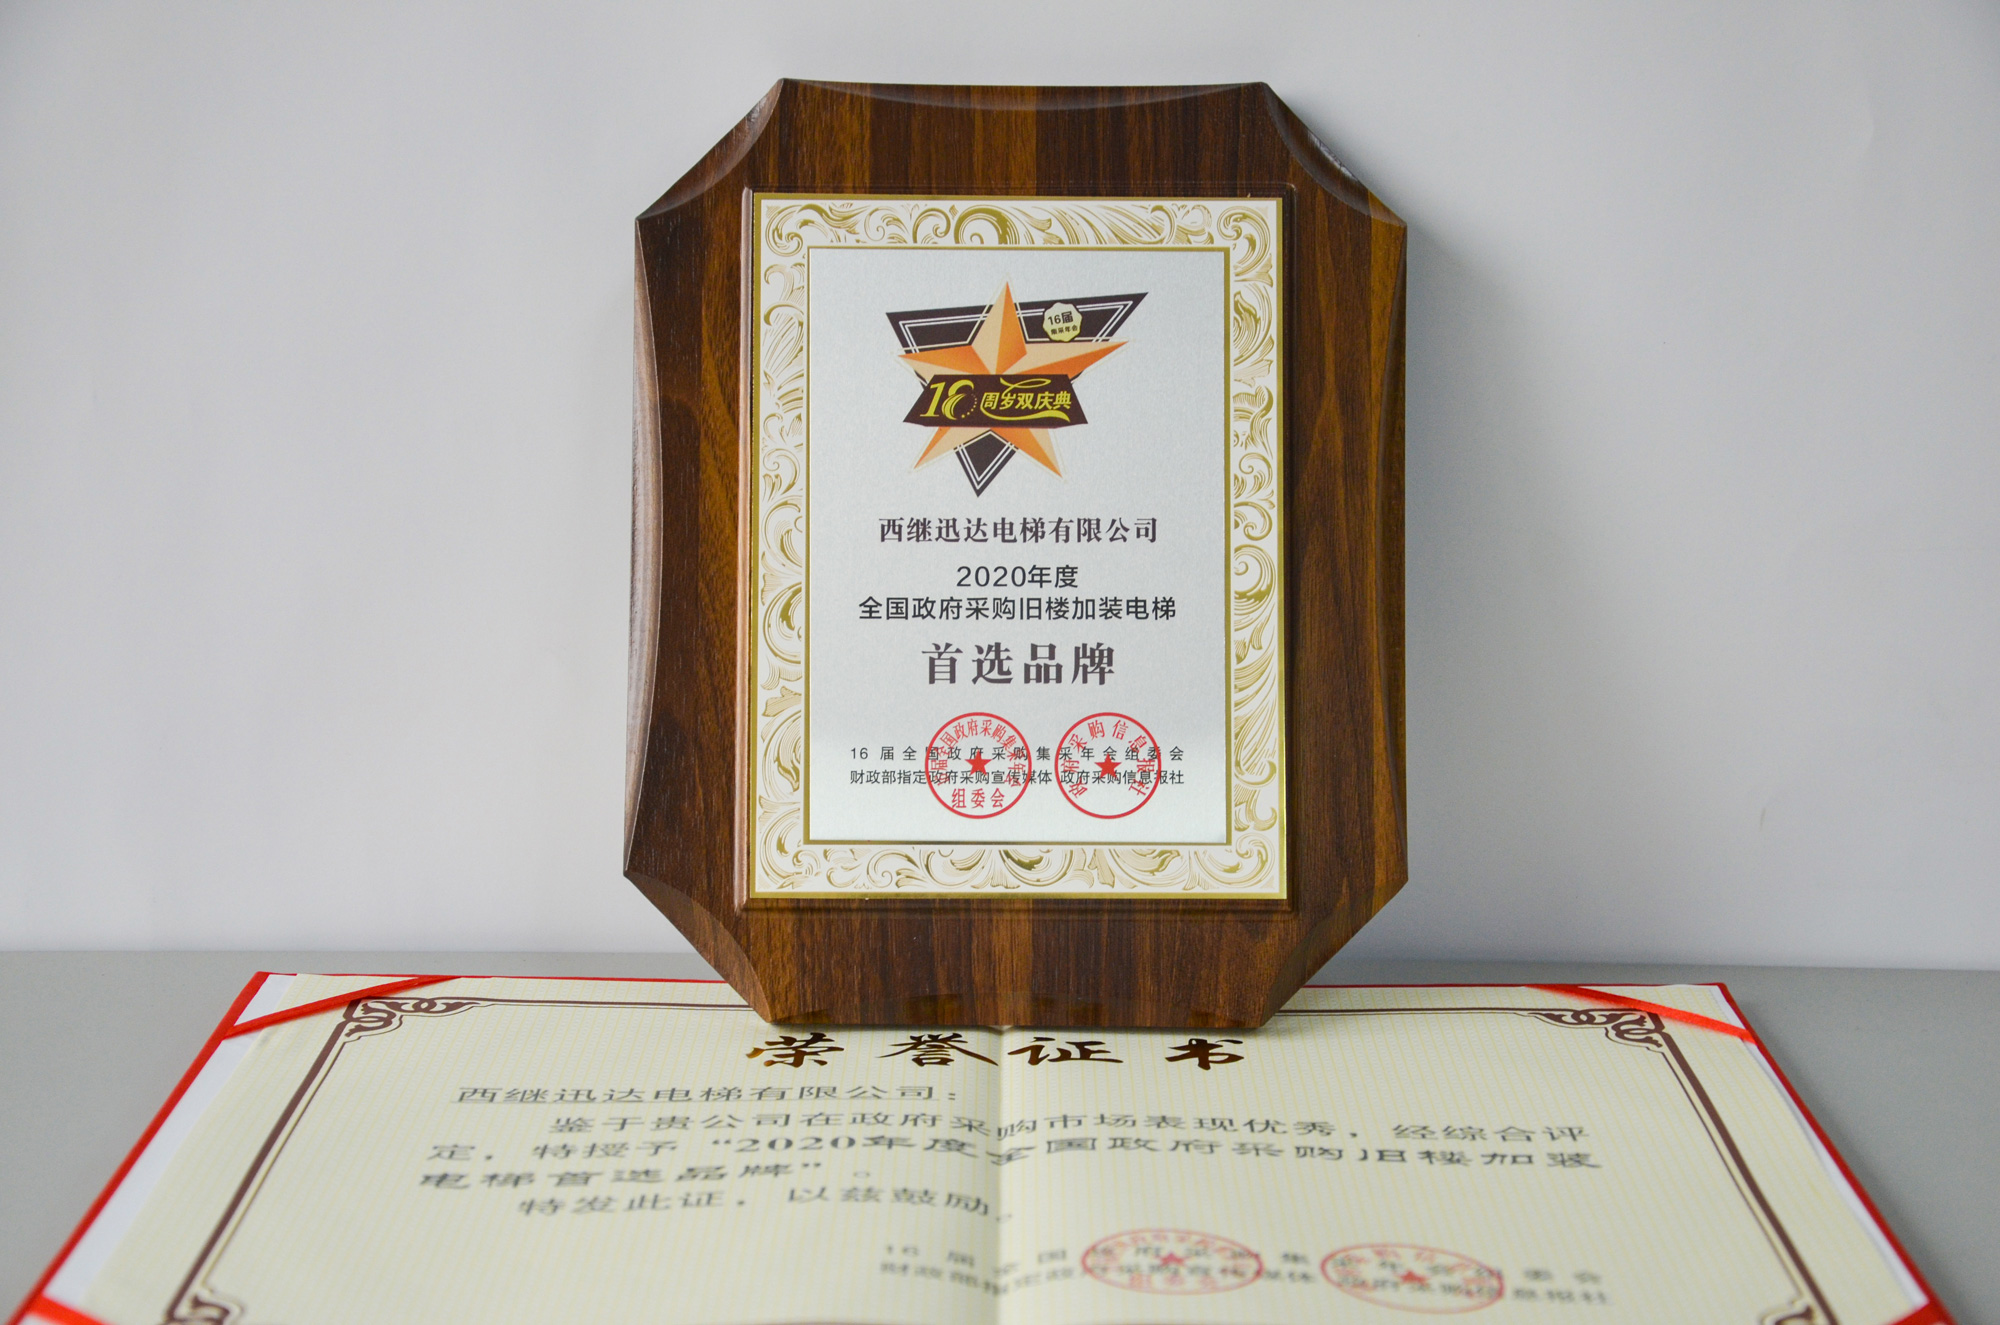 16届
集采年会
10周岁双庆典
西继迅达电梯有限公司
2020年度
全国政府采购旧楼加装电梯
首选品牌
16届全国政府采购集采年会组委会
财政部指定政府采购宣传媒体 政府采购信息报社
组委会
政府采购信息报社
荣誉证书
西继迅达电梯有限公司：
鉴于贵公司在政府采购市场表现优秀，经综合评
定，特授予“2020年度全国政府采购旧楼加装
电梯首选品牌”。
特发此证，以兹鼓励。
16届全国政府采购集采年会组委会
财政部指定政府采购宣传媒体 政府采购信息报社